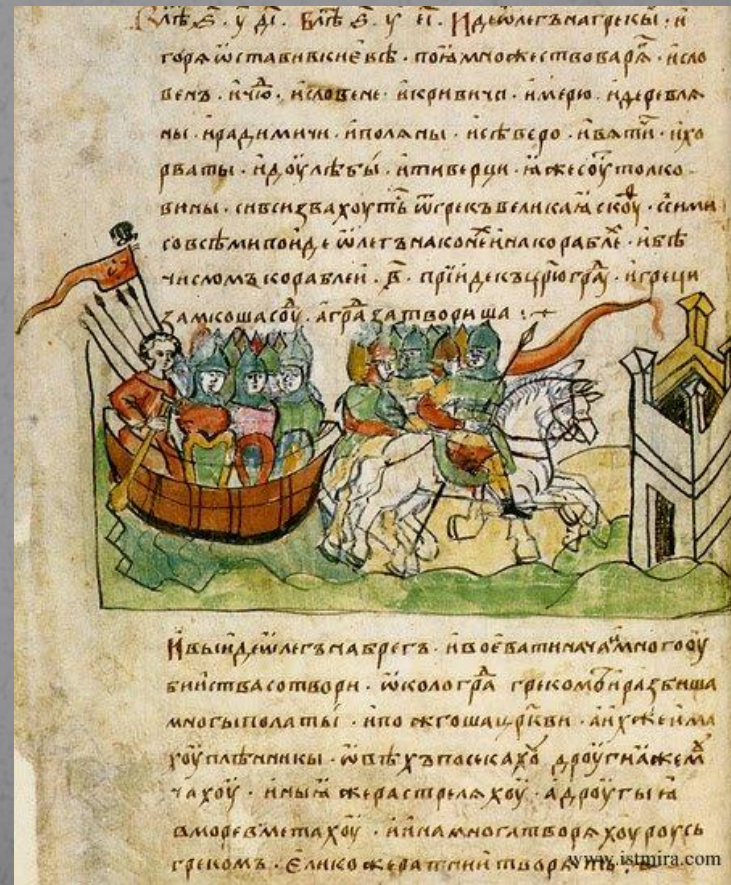 В лѣ ҂ѕ҃ . у҃ ді . В лѣ ҂ѕ҃ . у҃ еі . Иде ѡлегъ на грекы . и
горѧ ѡстави в киевѣ . поꙗ множествоварѧ . и сло
венъ . и чю . и словене . и кривичи . и мерю . и деревлѧ
ны . и радимичи . и полѧны . и сѣверо . и вѧтичи . и хо
рваты . и доулѣбы . и тиверци . ꙗже соуть толко
вины . си вси звахоуть ѿ грекъ великаꙗ скоу . с сими
со всѣми поиде ѡлегъ на конех и на кораблѣ . и бѣ
числомъ кораблеи . в҃ . прииде къ црюграу . и греци
замкоша соу . а гра затвориша :
И выиде ѡлегъ на брегъ . и воевати нача . и много оу
биинства сотвори . ѡколо гра грекомъ и разбиша
многы полаты . и пожгоша цркви . а их же има
хоу плѣнникы . ѡвѣхъ посекахоу дроугиꙗ же мѫ
чахоу . иныꙗ же растрелѧхоу . а дроугыꙗ
в море вметахоу . и ина многа творѧхоу роусь
грекомъ . елико же ратнии творѧть
www.istmira.com